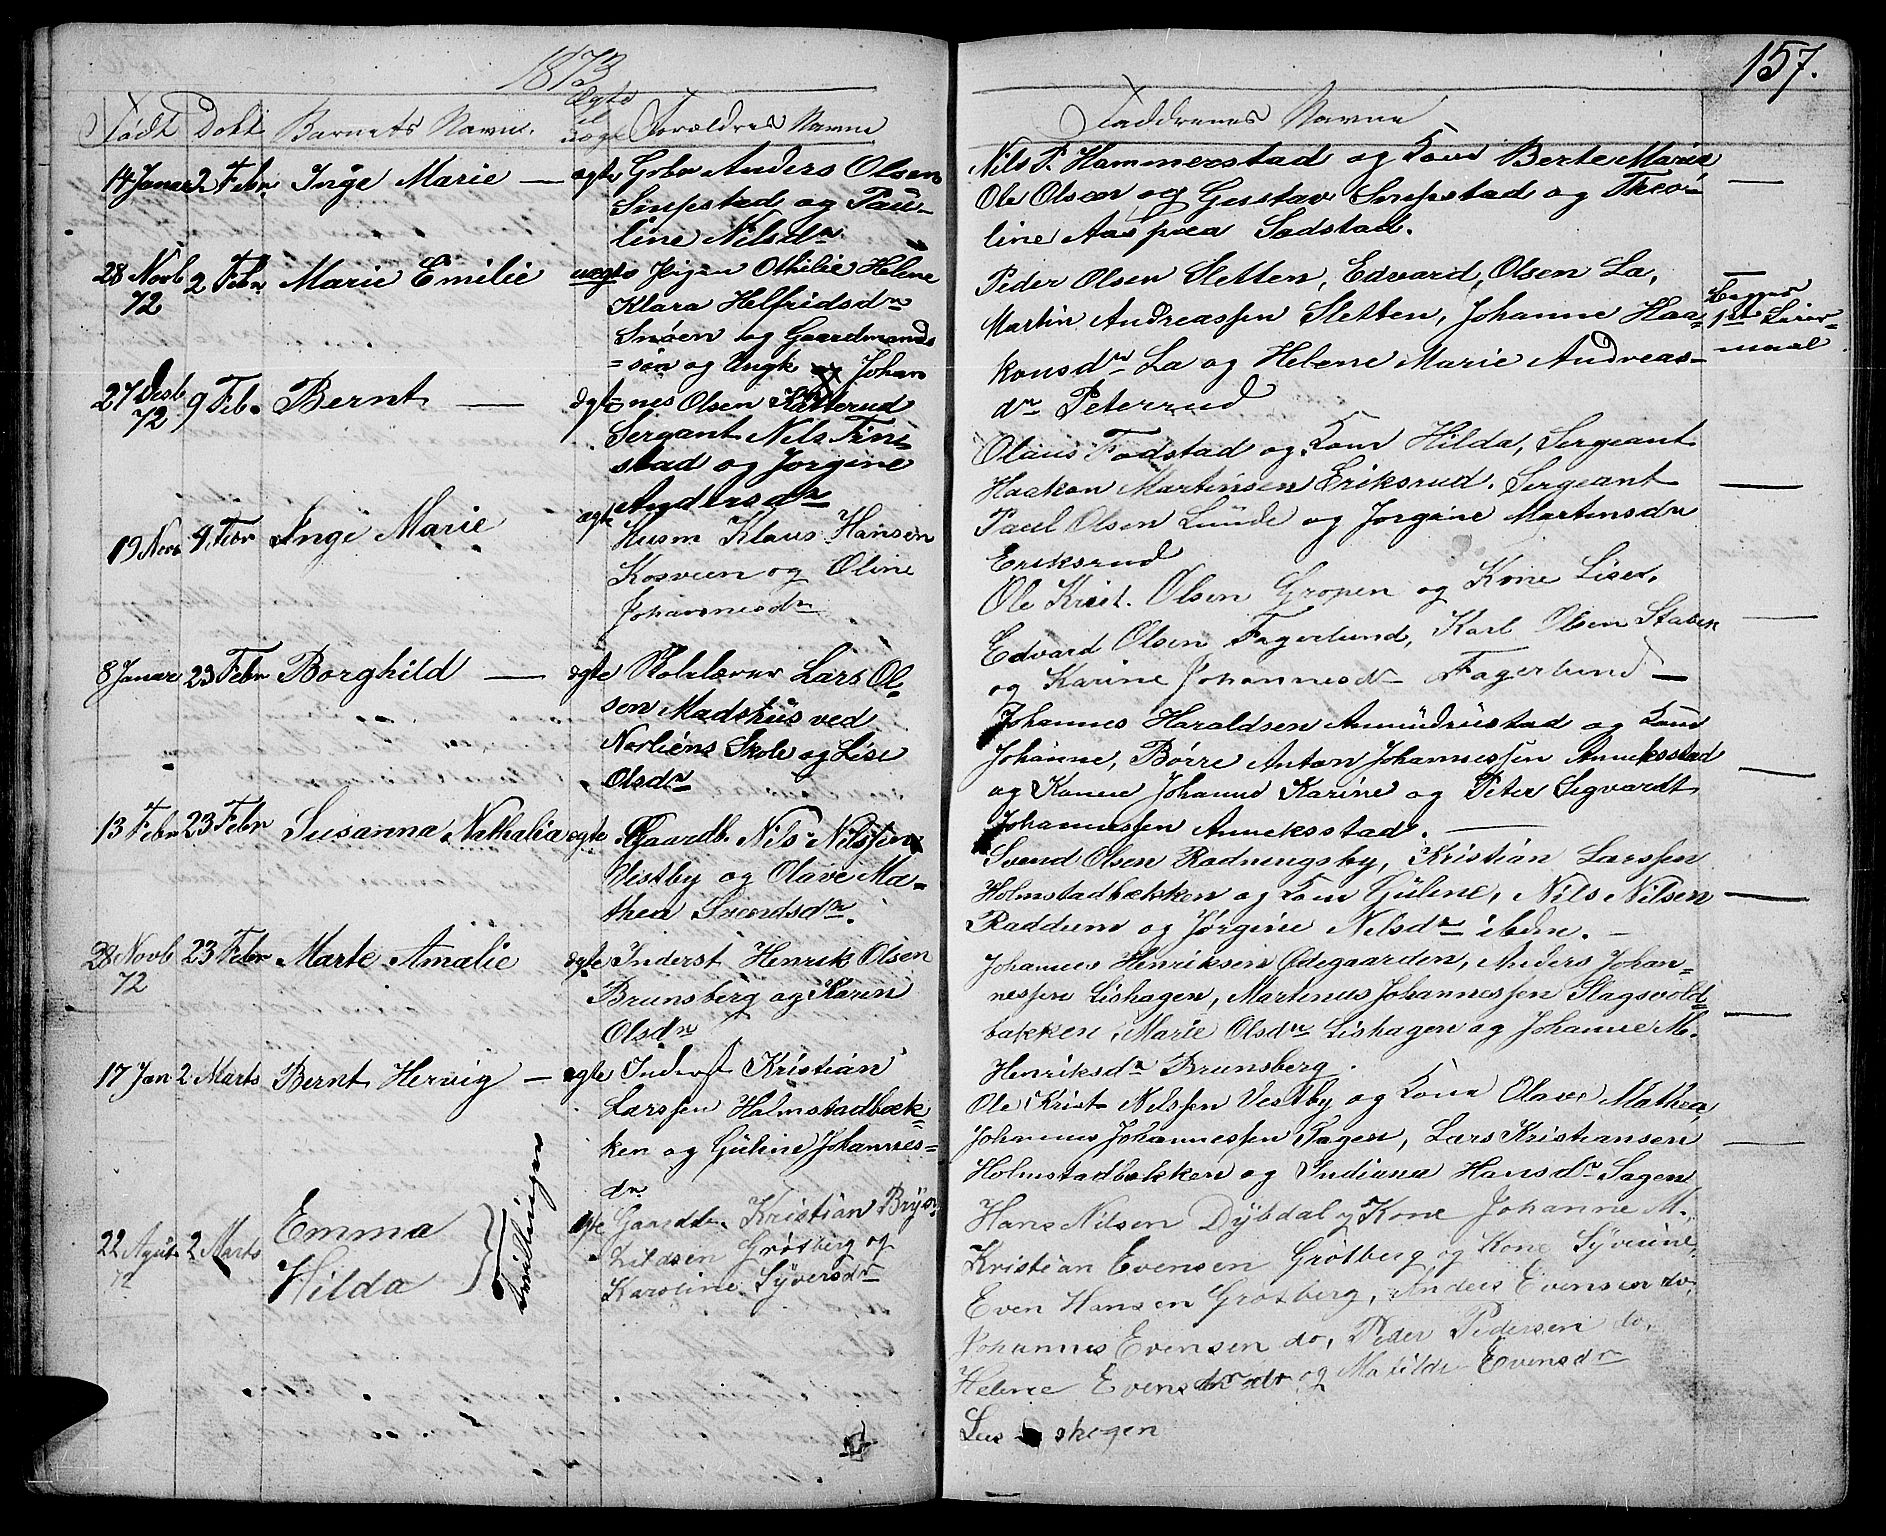 1873
157.
Født Døbt Barnets Navne. Ægte el uægte Forældres Navne
Faddrenes Navne
14 Januar 2 Febr Inge Marie — ægte Gbr Anders Olsen
Sinpstad og Pau-
line Nilsdr
28 Novb 72 2 Febr Marie Emilie uægte Pigen Othilie Helene
Klara Helfridsdr
Snøen og Gaardmands
=søn og Ungk Johan
27 Desb 72 9 Feb. Bernt — ægte =nes Olsen Sætterud
Sergant Nils Fine
stad og Jorgine
Andersdr
19 Novb 9 Febr Inge Marie ægte Husm Klaus Hansen
Kosveen og Oline
Johannesdr
8 Januar 23 Febr Borghild — ægte Skolelærer Lars Ol-
sen Madshus ved
Norliens Skole og Lise
Olsdr
13 Febr 23 Febr Susanna Nathalia ægte Gaardb. Nils Nilssen
Vestby og Olave Ma-
thea Svendsdr.
28 Novb 72 23 Febr Marte Amalie ægte Inderst Henrik Olsen
Brunsberg og Karen
Olsdr
17 Jan 2 Marts Bernt Hervig — ægte Inderst Kristian
Larssen Holmstadbæk-
ken og Guline Johannes-
dr
22 Agust 72 2 Marts Emma
Hilda
Tvillinger
ægte Gaardbr. Kristian
Grøtberg og
Karoline Syversdr
Nils P. Hammerstad og Kone Berte Marie,
Ole Olsen og Gustav Sinpstad og Theo-
line Sødstad. —
Peder Olsen Sletten, Edvard Olsen La,
Martin Andreassen Sletten, Johanne Haa-
konsdr La og Helene Marie Andreas-
dr Peterrud
Begges
1ste Leier-
maal
Olaus Fodstad og Kone Hilda, Sergeant
Haakon Martinsen Eriksrud. Sergeant —
Paul Olsen Lunde og Jorgine Martinsdr
Eriksrud
Ole Krist. Olsen Gropen og Kone Lise,
Edvard Olsen Fagerlund, Karl Olsen Staben —
og Karine Johannesdr Fagerlund —
Johannes Haraldsen Amundrustad og Kone
Johanne, Børre Anton Johannessen Anneksstad —
og Kone Johanne Karine og Peter Segvardt
Johannessen Anneksstad. —
Svend Olsen Radningsby, Kristian Larssen
Holmstadbækken og Kone Guline, Nils Nilsen —
Raddum og Jørgine Nilsdr ibdm. —
Johannes Henriksen Ødegaarden, Anders Johan-
nessen Lishagen, Martinus Johannessen Slagsvold- —
bakken, Marie Olsdr Lishagen og Johanne M.
Henriksdr Brunsberg.
Ole Krist Nilssen Vestby og Kone Olave Mathea,
Johannes Johannessen Sagen, Lars Kristiansen —
Holmstadbækken og Indiana Hansdr Sagen
Hans Nilsen Dybdal og Kone Johanne M.,
Kristian Evensen Grøtberg og Kone Syverine,
Even Hansen Grøtberg, Anders Evensen do,
Johannes Evensen do, Peder Pedersen do,
Helene Evensdr do og Matilde Evensdr